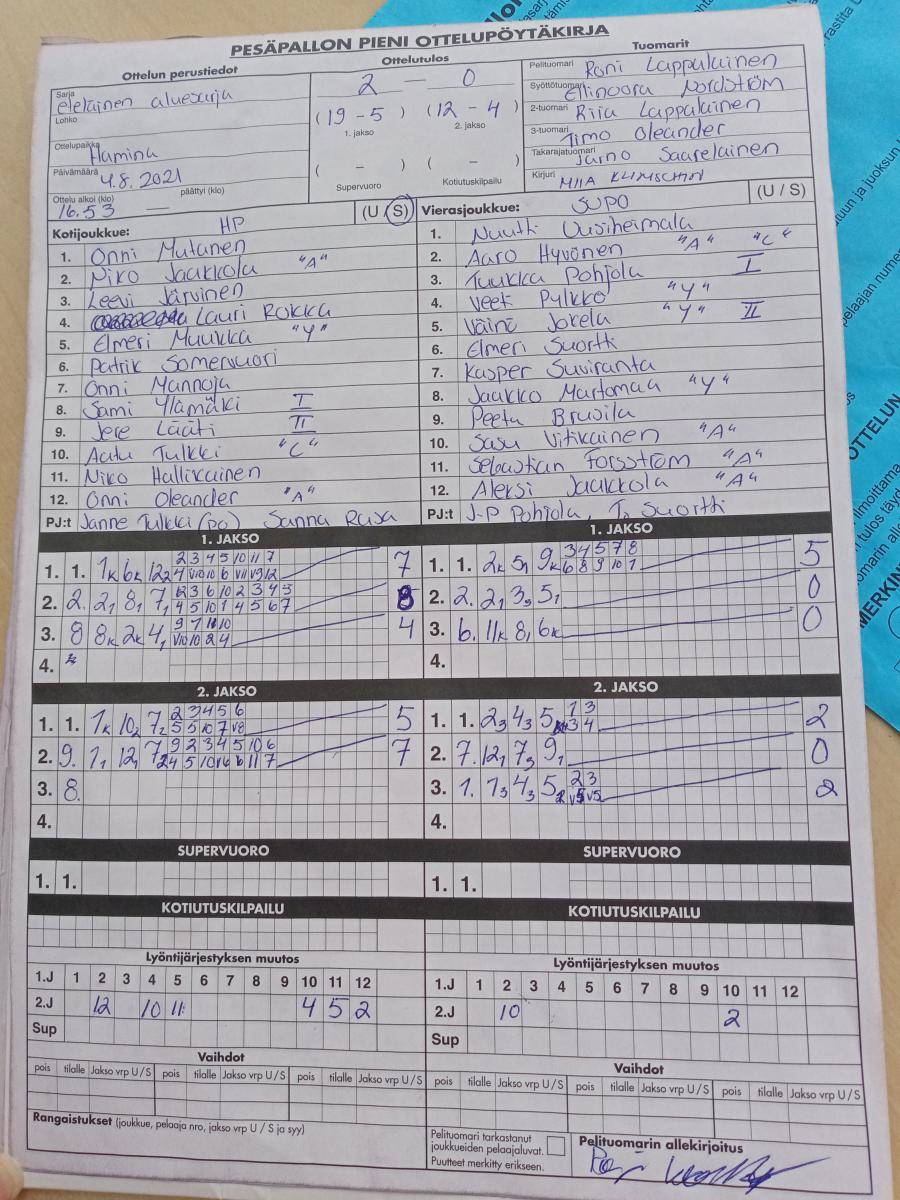 PESÄPALLON PIENI OTTELUPÖYTÄKIRJA
Ottelun perustiedot
Ottelutulos
Tuomarit
Sarja
eteläinen aluesarja
Lohko
Ottelupaikka Hamina
Päivämäärä 4.8.2021
päättyi (klo)
Ottelu alkoi (klo) 16.53
2 - 0
(19 - 5) (12 - 4)
1. jakso 2. jakso
( - ) ( - )
Supervuoro Kotiutuskilpailu
Pelituomari Roni Lappalainen
Syöttötuomari Ellinoora Nordström
2-tuomari Riia Lappalainen
3-tuomari Timo Oleander
Takarajatuomari Jarno Saarelainen
Kirjuri MIIA
Kotijoukkue: HP (U / S)
1. Onni Mutanen
2. Niko Jaakkola "A"
3. Leevi Järvinen
4. Lauri Rokka
5. Elmeri Muukka "Y"
6. Patrik Somervuori
7. Onni Mannoja
8. Sami Ylämäki I
9. Jere Lääti II
10. Aatu Tulkki "C"
11. Niko Hallikainen
12. Onni Oleander "A"
PJ:t Janne Tulkki (po) Sanna Rasa
Vierasjoukkue: SUPO (U / S)
1. Nuutti Uusiheimala
2. Aaro Hyvönen "A" "C"
3. Tuukka Pohjola I
4. Veeti Pylkkö "Y"
5. Väinö Jokela "Y" II
6. Elmeri Suortti
7. Kasper Suviranta
8. Jaakko Martomaa "Y"
9. Peetu Brusila
10. Sasu Vitikainen "A"
11. Sebastian Forsström "A"
12. Aleksi Jaakkola "A"
PJ:t J-P Pohjola, T. Suortti
1. JAKSO
1. 1. 1k 6k 12 2 3 4 5 10 11 7 7
2. 2. 2, 8, 7, 8
3. 8 8k 2k 4, 4
4.
2. JAKSO
1. 1. 1k 10 7 2 3 4 5 6 5
2. 9. 1, 12, 7 9 2 3 4 5 10 6 7
3. 8.
4.
SUPERVUORO
1. 1.
KOTIUTUSKILPAILU
1. JAKSO
1. 1. 2k 5, 9k 3 4 5 7 8 5
6 8 9 10 1
2. 2. 2, 3, 5, 0
3. 6. 11k 8, 6k 0
4.
2. JAKSO
1. 1. 2 4 5 1 3 2
3 4
2. 7. 12, 7 9, 0
3. 1. 1 4 5 2 3 2
4.
SUPERVUORO
1. 1.
KOTIUTUSKILPAILU
Lyöntijärjestyksen muutos
1.J 1 2 3 4 5 6 7 8 9 10 11 12
2.J 12 10 11 4 5 2
Sup
Vaihdot
pois tilalle Jakso vrp U / S pois tilalle Jakso vrp U / S pois tilalle Jakso vrp U / S
Lyöntijärjestyksen muutos
1.J 1 2 3 4 5 6 7 8 9 10 11 12
2.J 10 2
Sup
Vaihdot
pois tilalle Jakso vrp U / S pois tilalle Jakso vrp U / S pois tilalle Jakso vrp U / S
Rangaistukset (joukkue, pelaaja nro, jakso vrp U / S ja syy)
Pelituomari tarkastanut
joukkueiden pelaajaluvat.
Puutteet merkitty erikseen.
Pelituomarin allekirjoitus